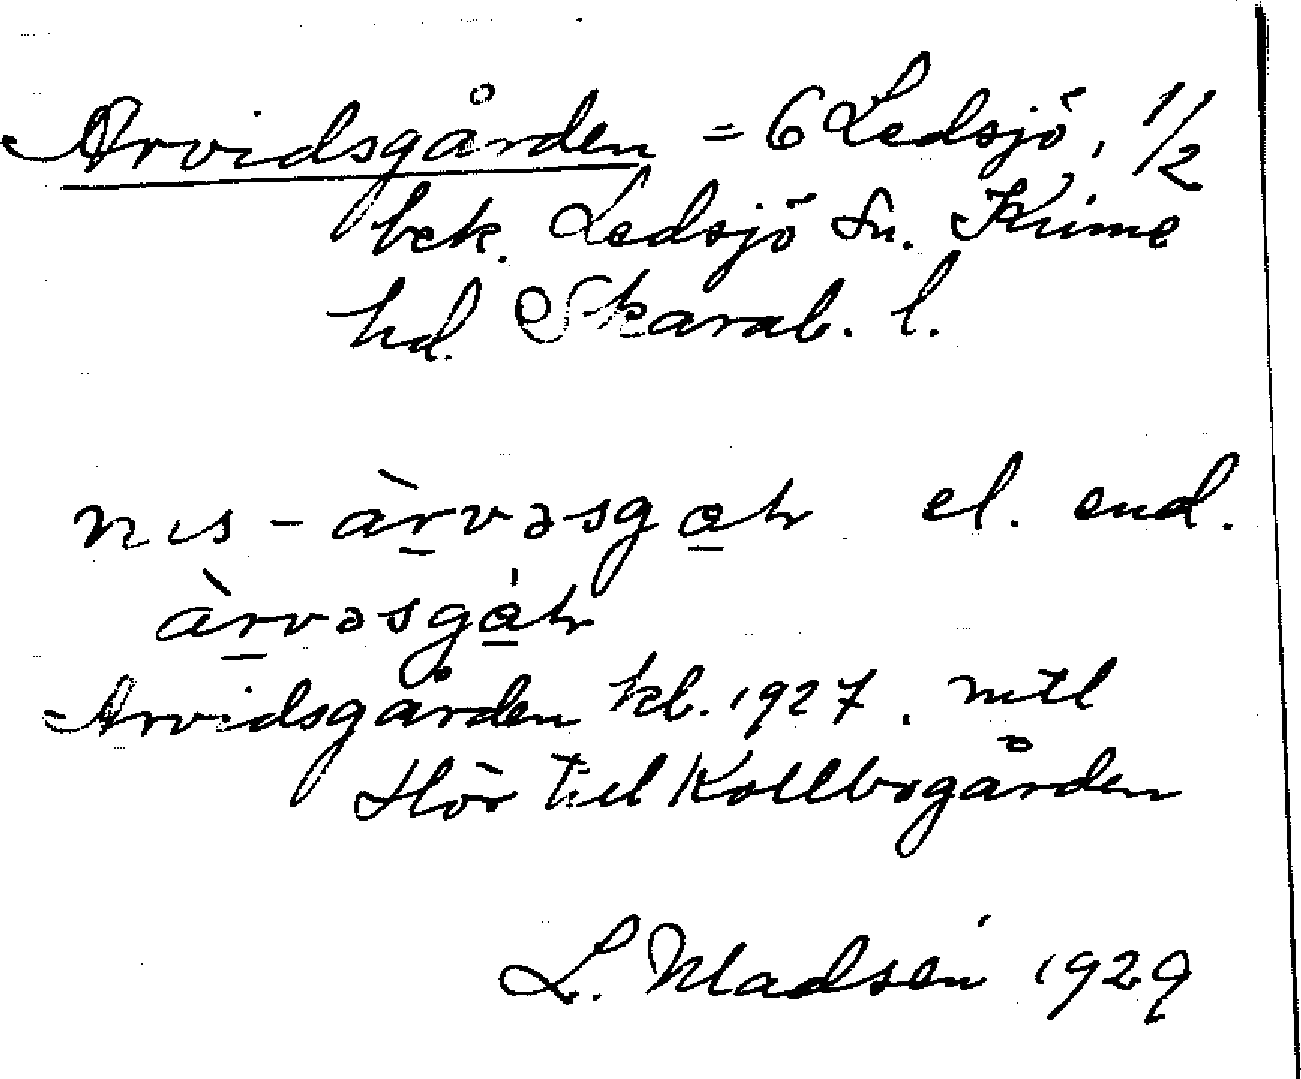 Arvidsgården = 6 Ledsjö, 1/2
bek. Ledsjö sn. Kinne
hd. Skarab. l.
nıs-àrvəsgaɦr el. end.
àrvəsgáɦr
Arvidsgården kb. 1927. mtl
Hör till Kollbogården
L. Madsén 1929